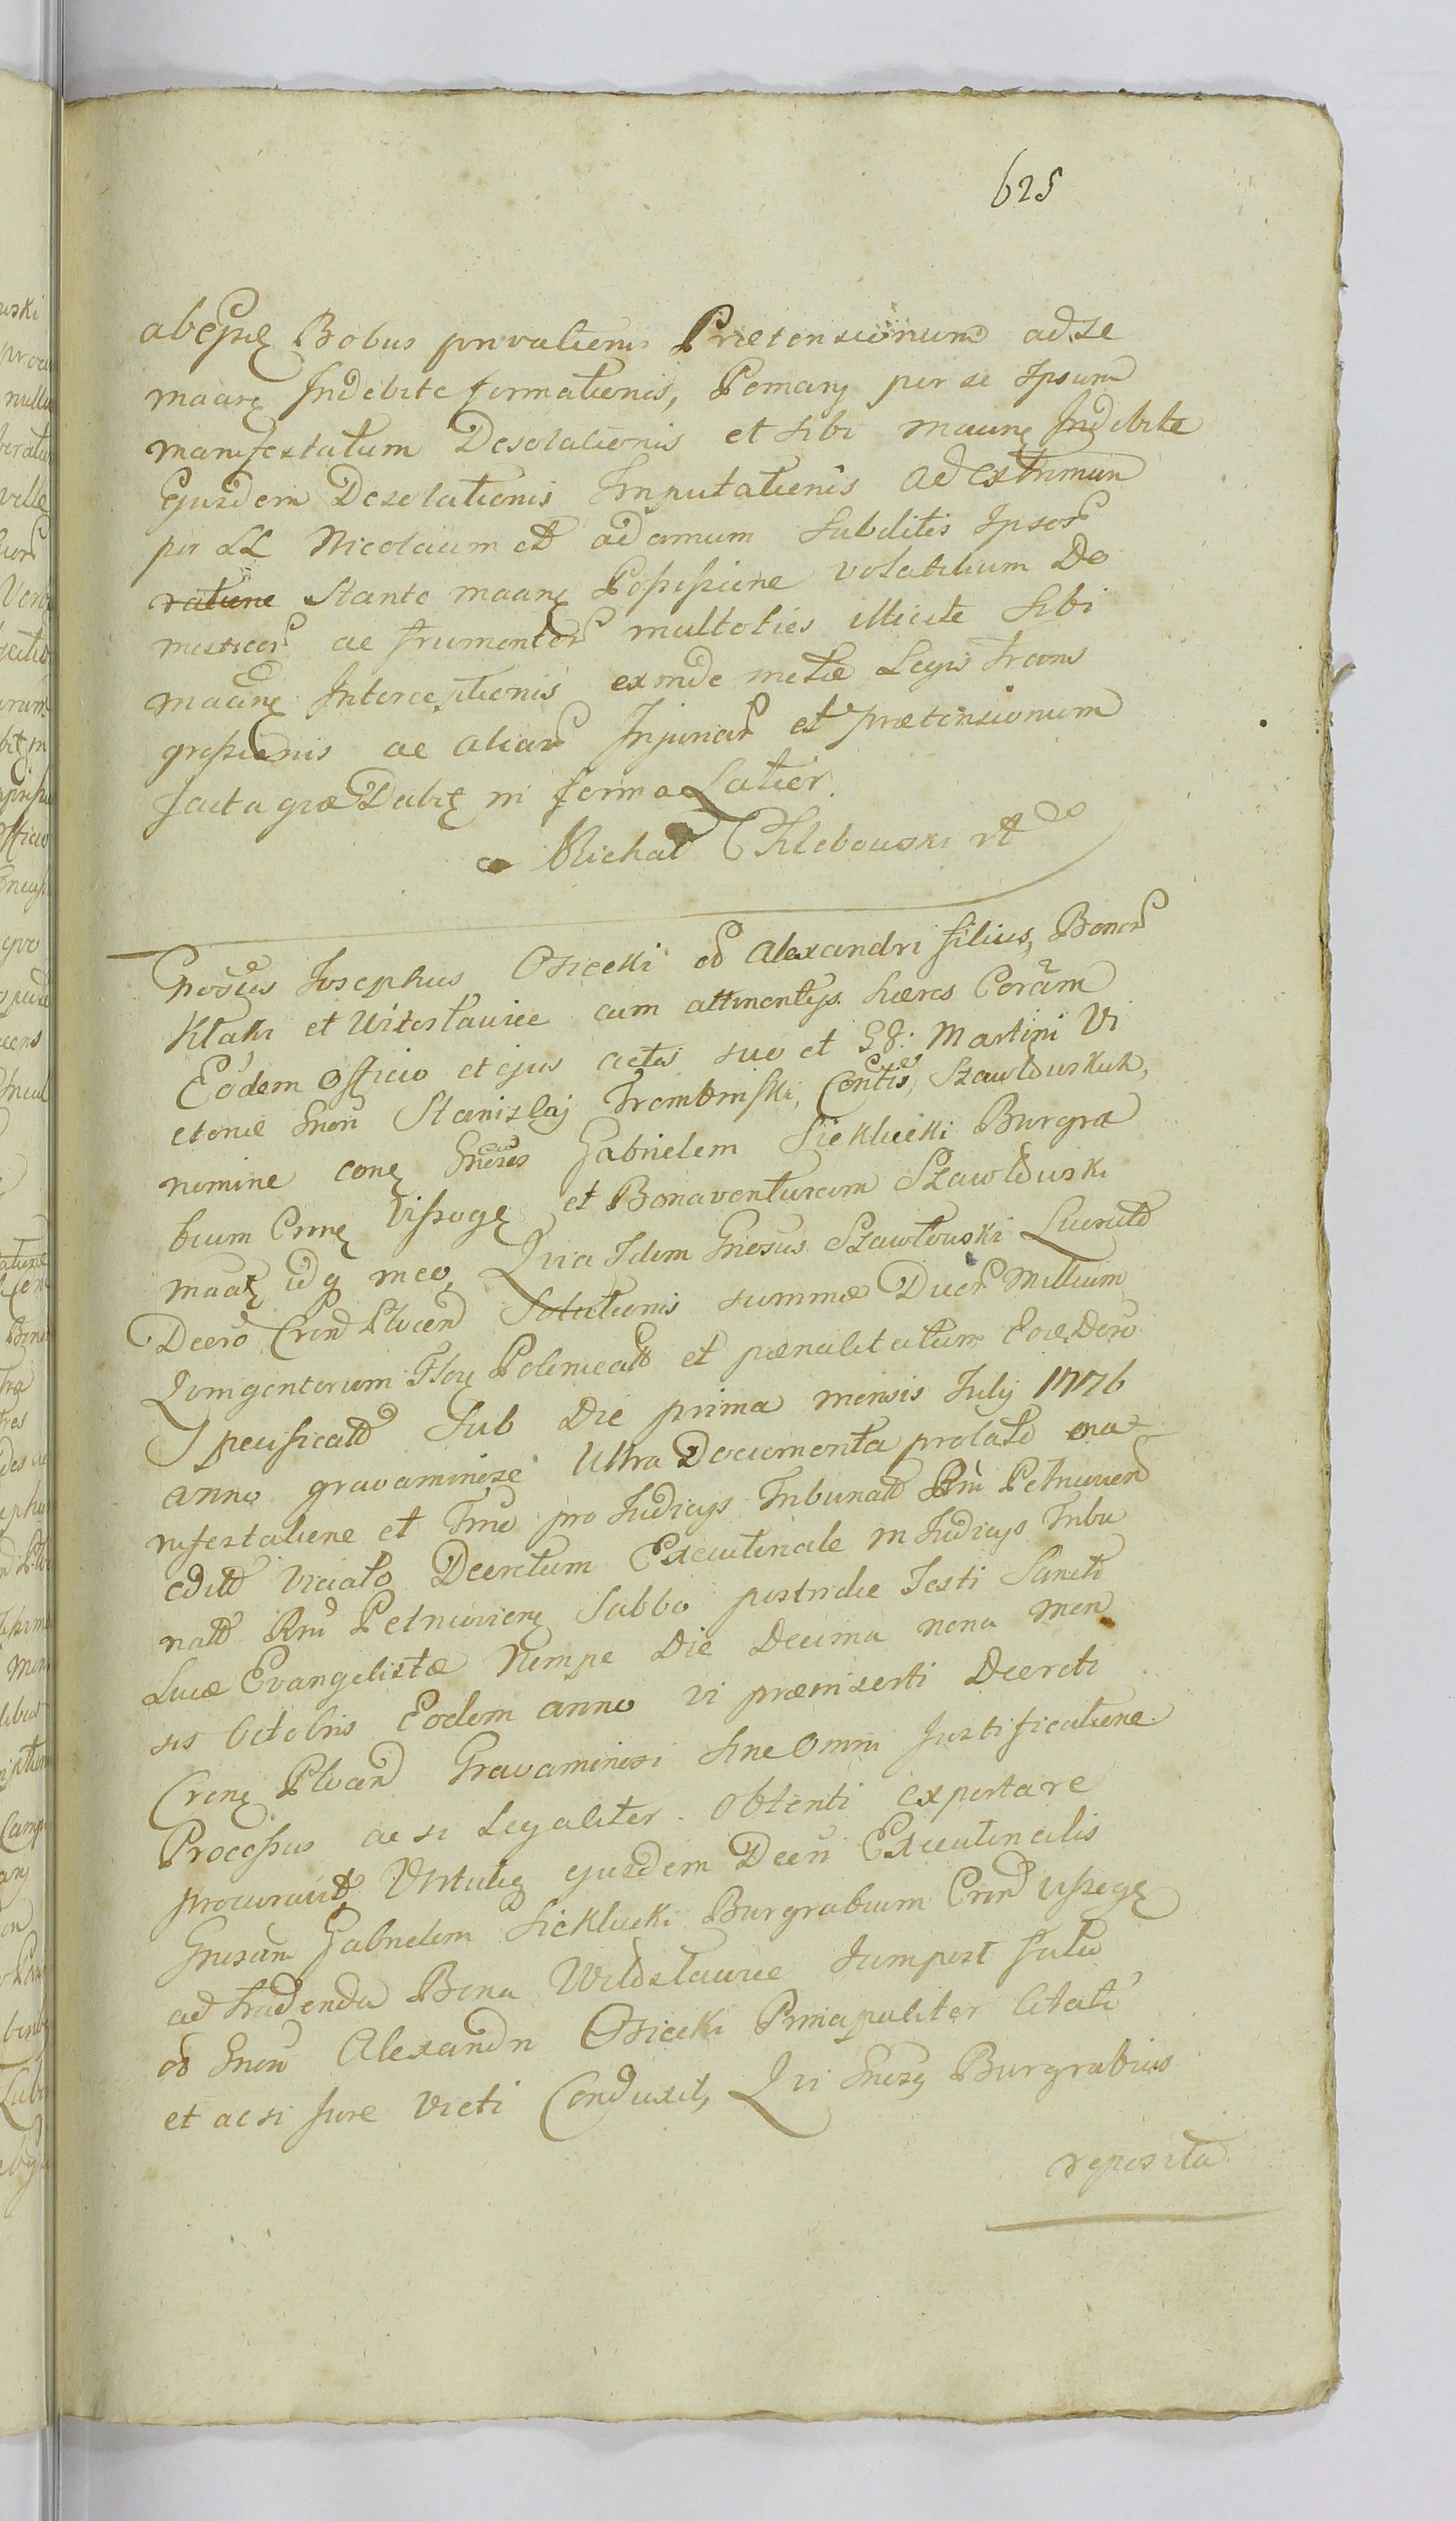 625
Bobus privationis Prætensionum ad se
maarę Indebite formationis, Pomarij per se Ipsum
manifestatum Desolationis et sibi maarę Indebite
Ejusdem Desolationis Imputationis ad extremum
per LL Nicolaum et adamum Subditis Ipsor
ratione Stante maarę Possessione volatilium Do
mesticor ac frumentor multoties illicite Sibi
maarę Interceptionis exinde metæ Legis Trans
gressionis ac aliar Injuriar et prætensionum
facta græ Dabit in forma Latior.
Michał Chlebowski
Josephus Osiecki od Alexandri filius, Bonor
et Witosławice cum attinentijs hæres Coram
Eodem officio et ejus actis suo et Martini Vi
ctoris Gnosi Stanislaj Trombinski, Szawłowskich,
nomine conę Gnosos Gabrielem Sieklucki Burgra
bium Crnę Vissogę et Bonaventuram Szawłowski
maatę idq meo, Quia Idem Gnosus Szawłowski Lucrato
Decro Crnd Plocen Solutionis summæ Duor Millium
Quingentorum Flor Polonicall et pænalitatum Decro
Specificatt Sub Die prima mensis Julij 1776
anno gravaminose Ultra Documenta prolato ma
nifestatione et Tno pro Judicijs Tribunatt Rni Petricovien
editt viciato Decretum Executionale in Judicijs Tribu
natt Rni Petricovienę Sabbo postridie Festi Sancti
Lucæ Evangelistæ Nempe Die Decima nona men
sis Octobris Eodem anno vi præmiserti Decreti
Crenę Plocen Gravaminosi Sine Omni Justificatione
Processus ac si Legaliter obtenti exportare
procuravit, Virtuteq ejusdem Decri Executionalis
Gnosum Gabrielem Sieklucki Burgrabium Crnd Vissogę
ad tradenda Bona Witosławice
od Gnosi Alexandri Osiecki Principaliter Citati
et ac si Jure victi Conduxit, Qui Gnosq Burgrabius
reposita